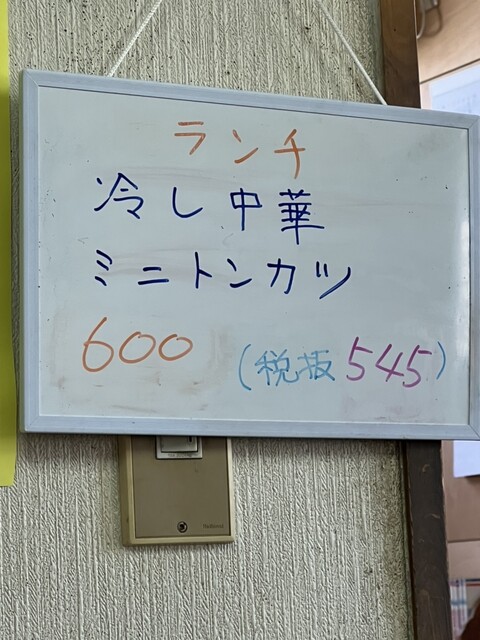 ランチ
冷し中華
ミニトンカツ
600 (税抜545)
National